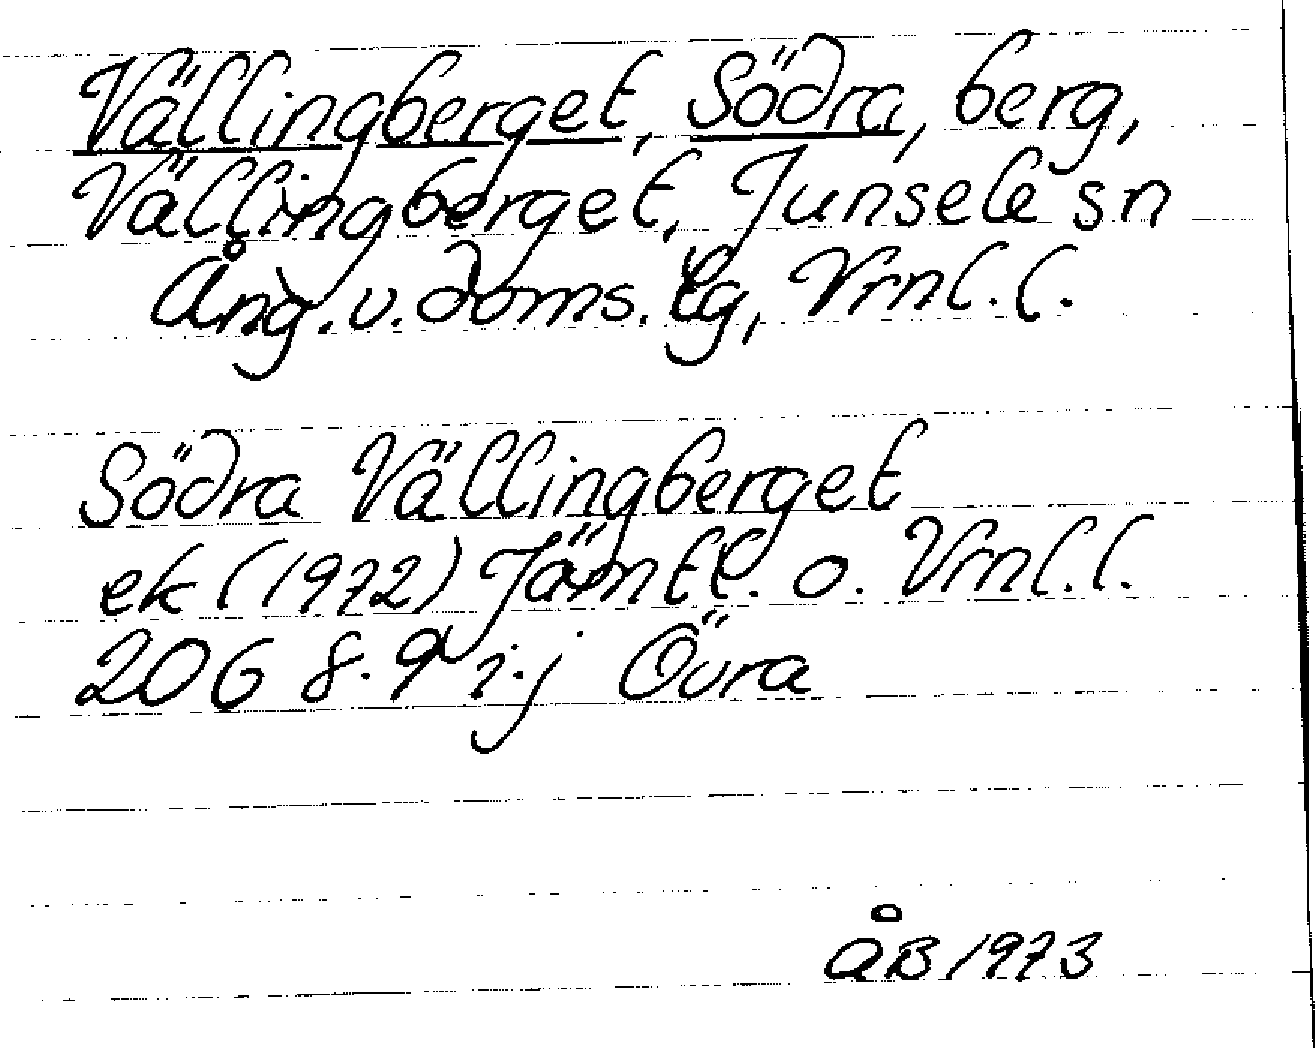 Vällingberget, Södra, berg,
Vällingberget, Junsele sn
Ång. v. doms. lg, Vrnl. l.
Södra Vällingberget
ek (1972) Jämtl. o. Vrnl. l.
206 8-9 i-j Övra
ÅB 1973